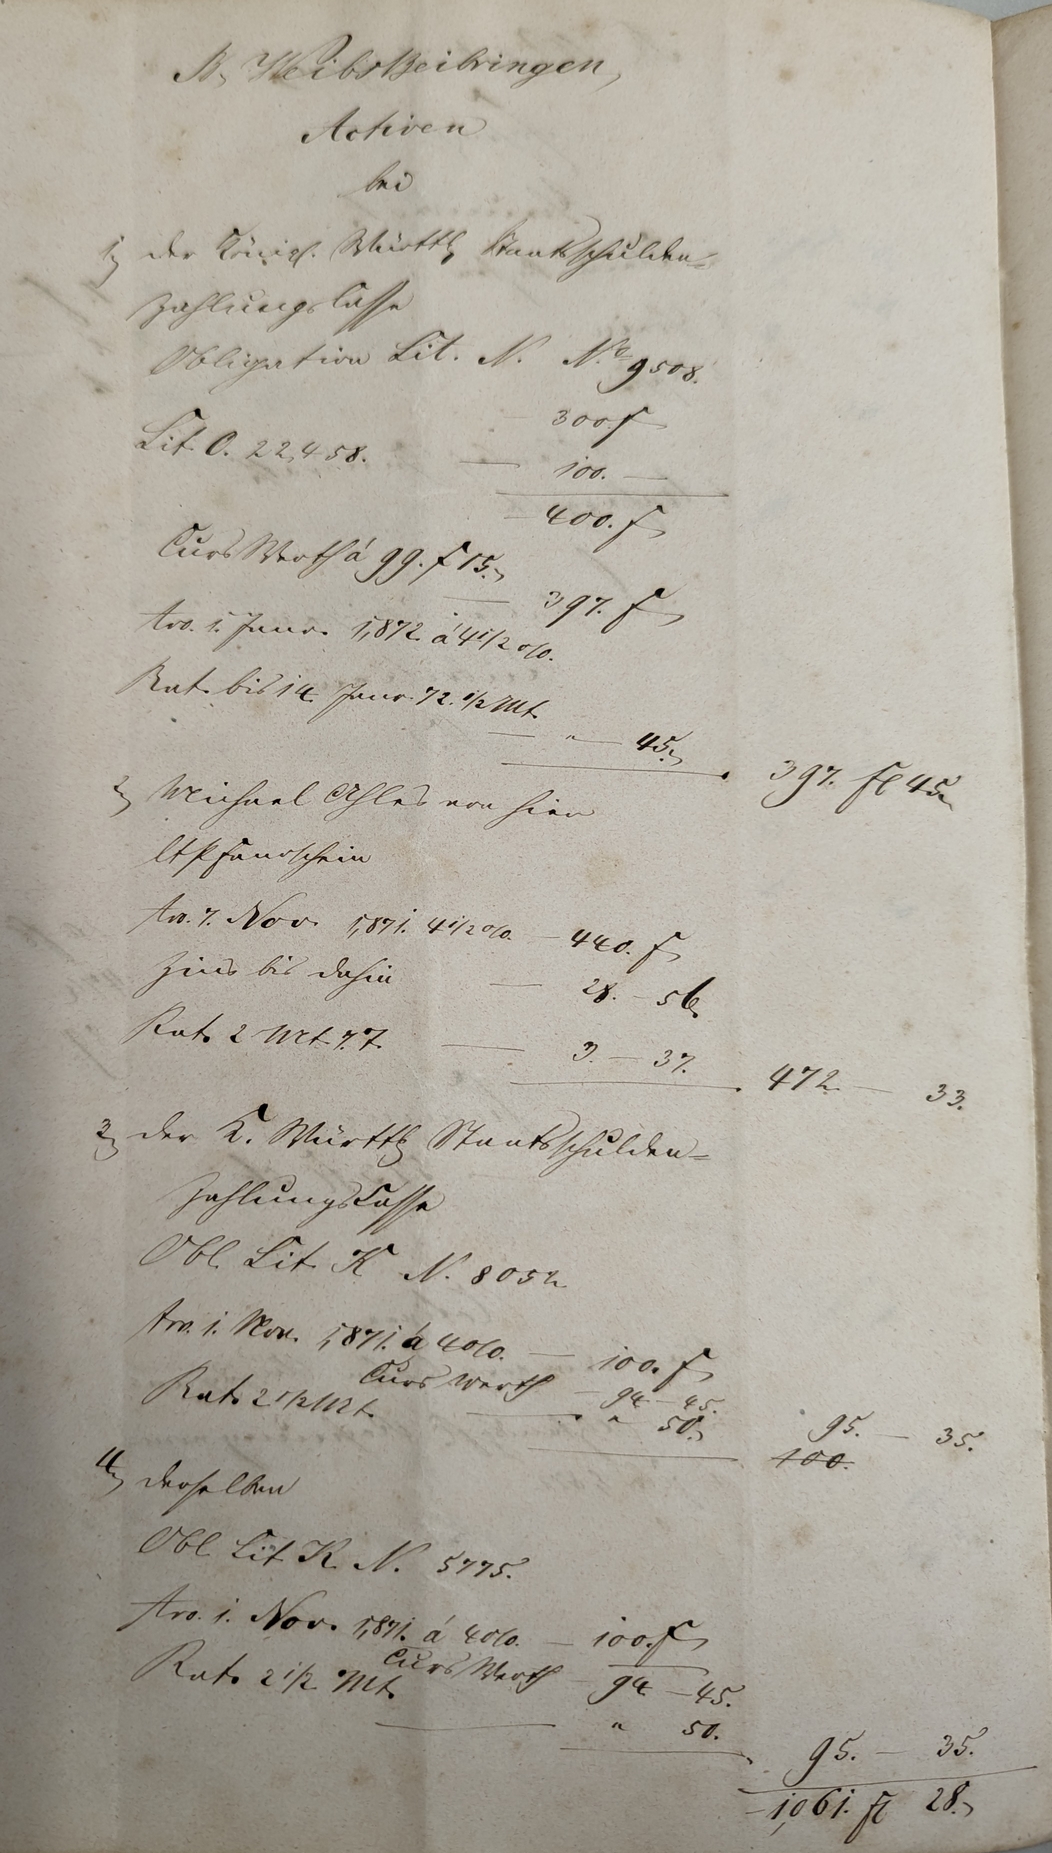 B, WeibsBeibringen,
Activen
bei
1, der Königl. Württb. Staatsschulden-
zahlungsCasse
Obligation Lit. N. N.º 9508.
300 f
Lit. O. 22,458. — 100. —
400. f
Curs Werth á 99. f 15. — 397. f
1. Janr. 1,872. á 4 1/2 %.
Rat. bis 14. Janr. 72. 1/2 Mt.
— " — 45. 397. fl 45
2, Michael Ahles von hier
Pfandschein
7. Nov. 1,871. 4 1/2 %. — 440. f
Zins bis dahin — 28. — 56.
Rat. 2 Mt. 7 T. — 3. — 37. 472. — 33.
3, der K. Württb. Staatsschulden-
zahlungsCasse
Obl. Lit. K N. 8052
1. Nov. 1,871. á 4 %. — 100. f
Curs Werth — 94 — 45.
Rat. 2 1/2 Mt. — " 50. 95. — 35.
100.
4, derselben
Obl. Lit K. N. 5775.
1. Nov. 1,871. á 4 %. — 100. f
Curs Werth — 94 — 45.
Rat. 2 1/2 Mt.
— " 50.
95. — 35.
1,061. fl 28.